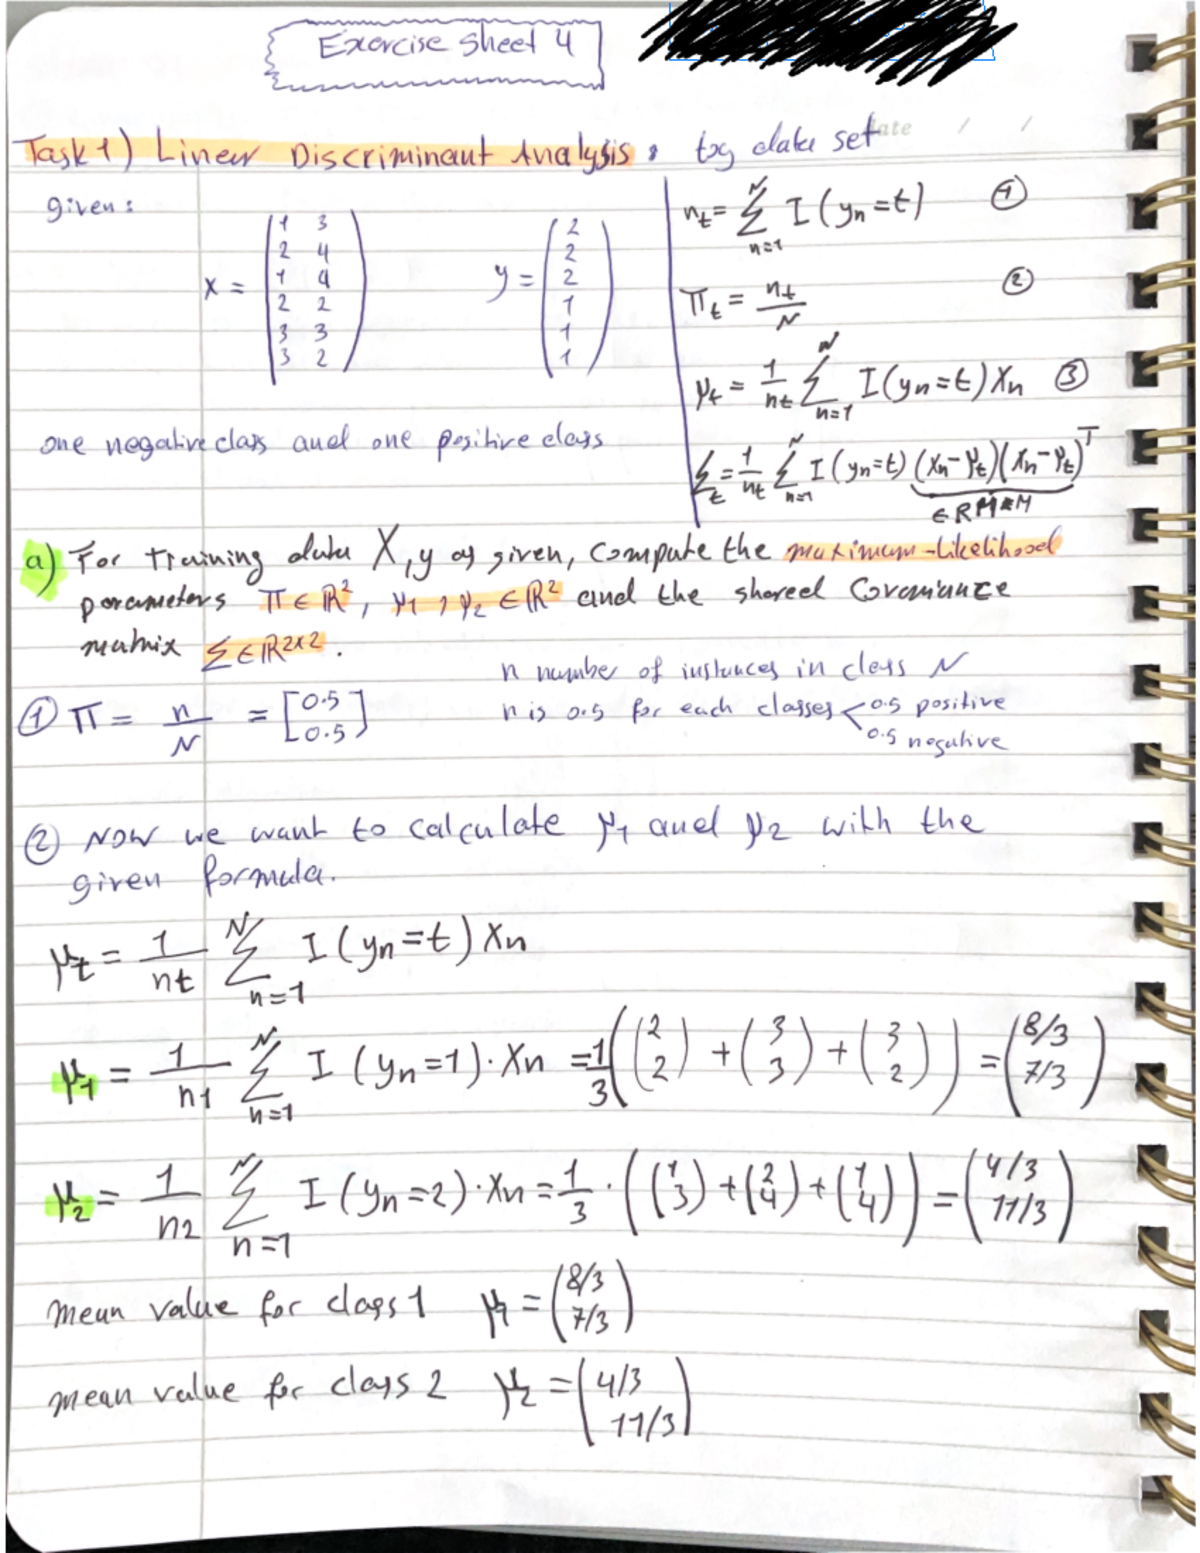 Exercise sheet 4
Task 1) Linear Discriminant Analysis : toy data set
Date / /
given:
X = ( 1 3
2 4
1 4
2 2
3 3
3 2 )
y = ( 2
2
2
1
1
1 )
n_t = Σ_{n=1}^{N} I(y_n = t) ①
π_t = n_t / N ②
μ_t = 1/n_t Σ_{n=1}^{N} I(y_n = t) X_n ③
Σ_t = 1/n_t Σ_{n=1}^{N} I(y_n = t) (X_n - μ_t)(X_n - μ_t)^T
∈ R^{M×M}
one negative class and one positive class
a) For training data X, y as given, compute the maximum-likelihood
parameters π ∈ ℝ², μ_1, μ_2 ∈ ℝ² and the shared Covariance
matrix Σ ∈ ℝ^{2×2}.
n number of instances in class N
① π = n / N = [ 0.5
0.5 ]
n is 0.5 for each classes < 0.5 positive
0.5 negative
② Now we want to calculate μ_1 and μ_2 with the
given formula.
μ_t = 1/n_t Σ_{n=1}^{N} I(y_n = t) X_n
μ_1 = 1/n_1 Σ_{n=1}^{N} I(y_n = 1) · X_n = 1/3 ( (2 2) + (3 3) + (3 2) ) = (8/3 7/3)
μ_2 = 1/n_2 Σ_{n=1}^{N} I(y_n = 2) · X_n = 1/3 · ( (1 3) + (2 4) + (1 4) ) = (4/3 11/3)
mean value for class 1 μ_1 = (8/3 7/3)
mean value for class 2 μ_2 = (4/3 11/3)